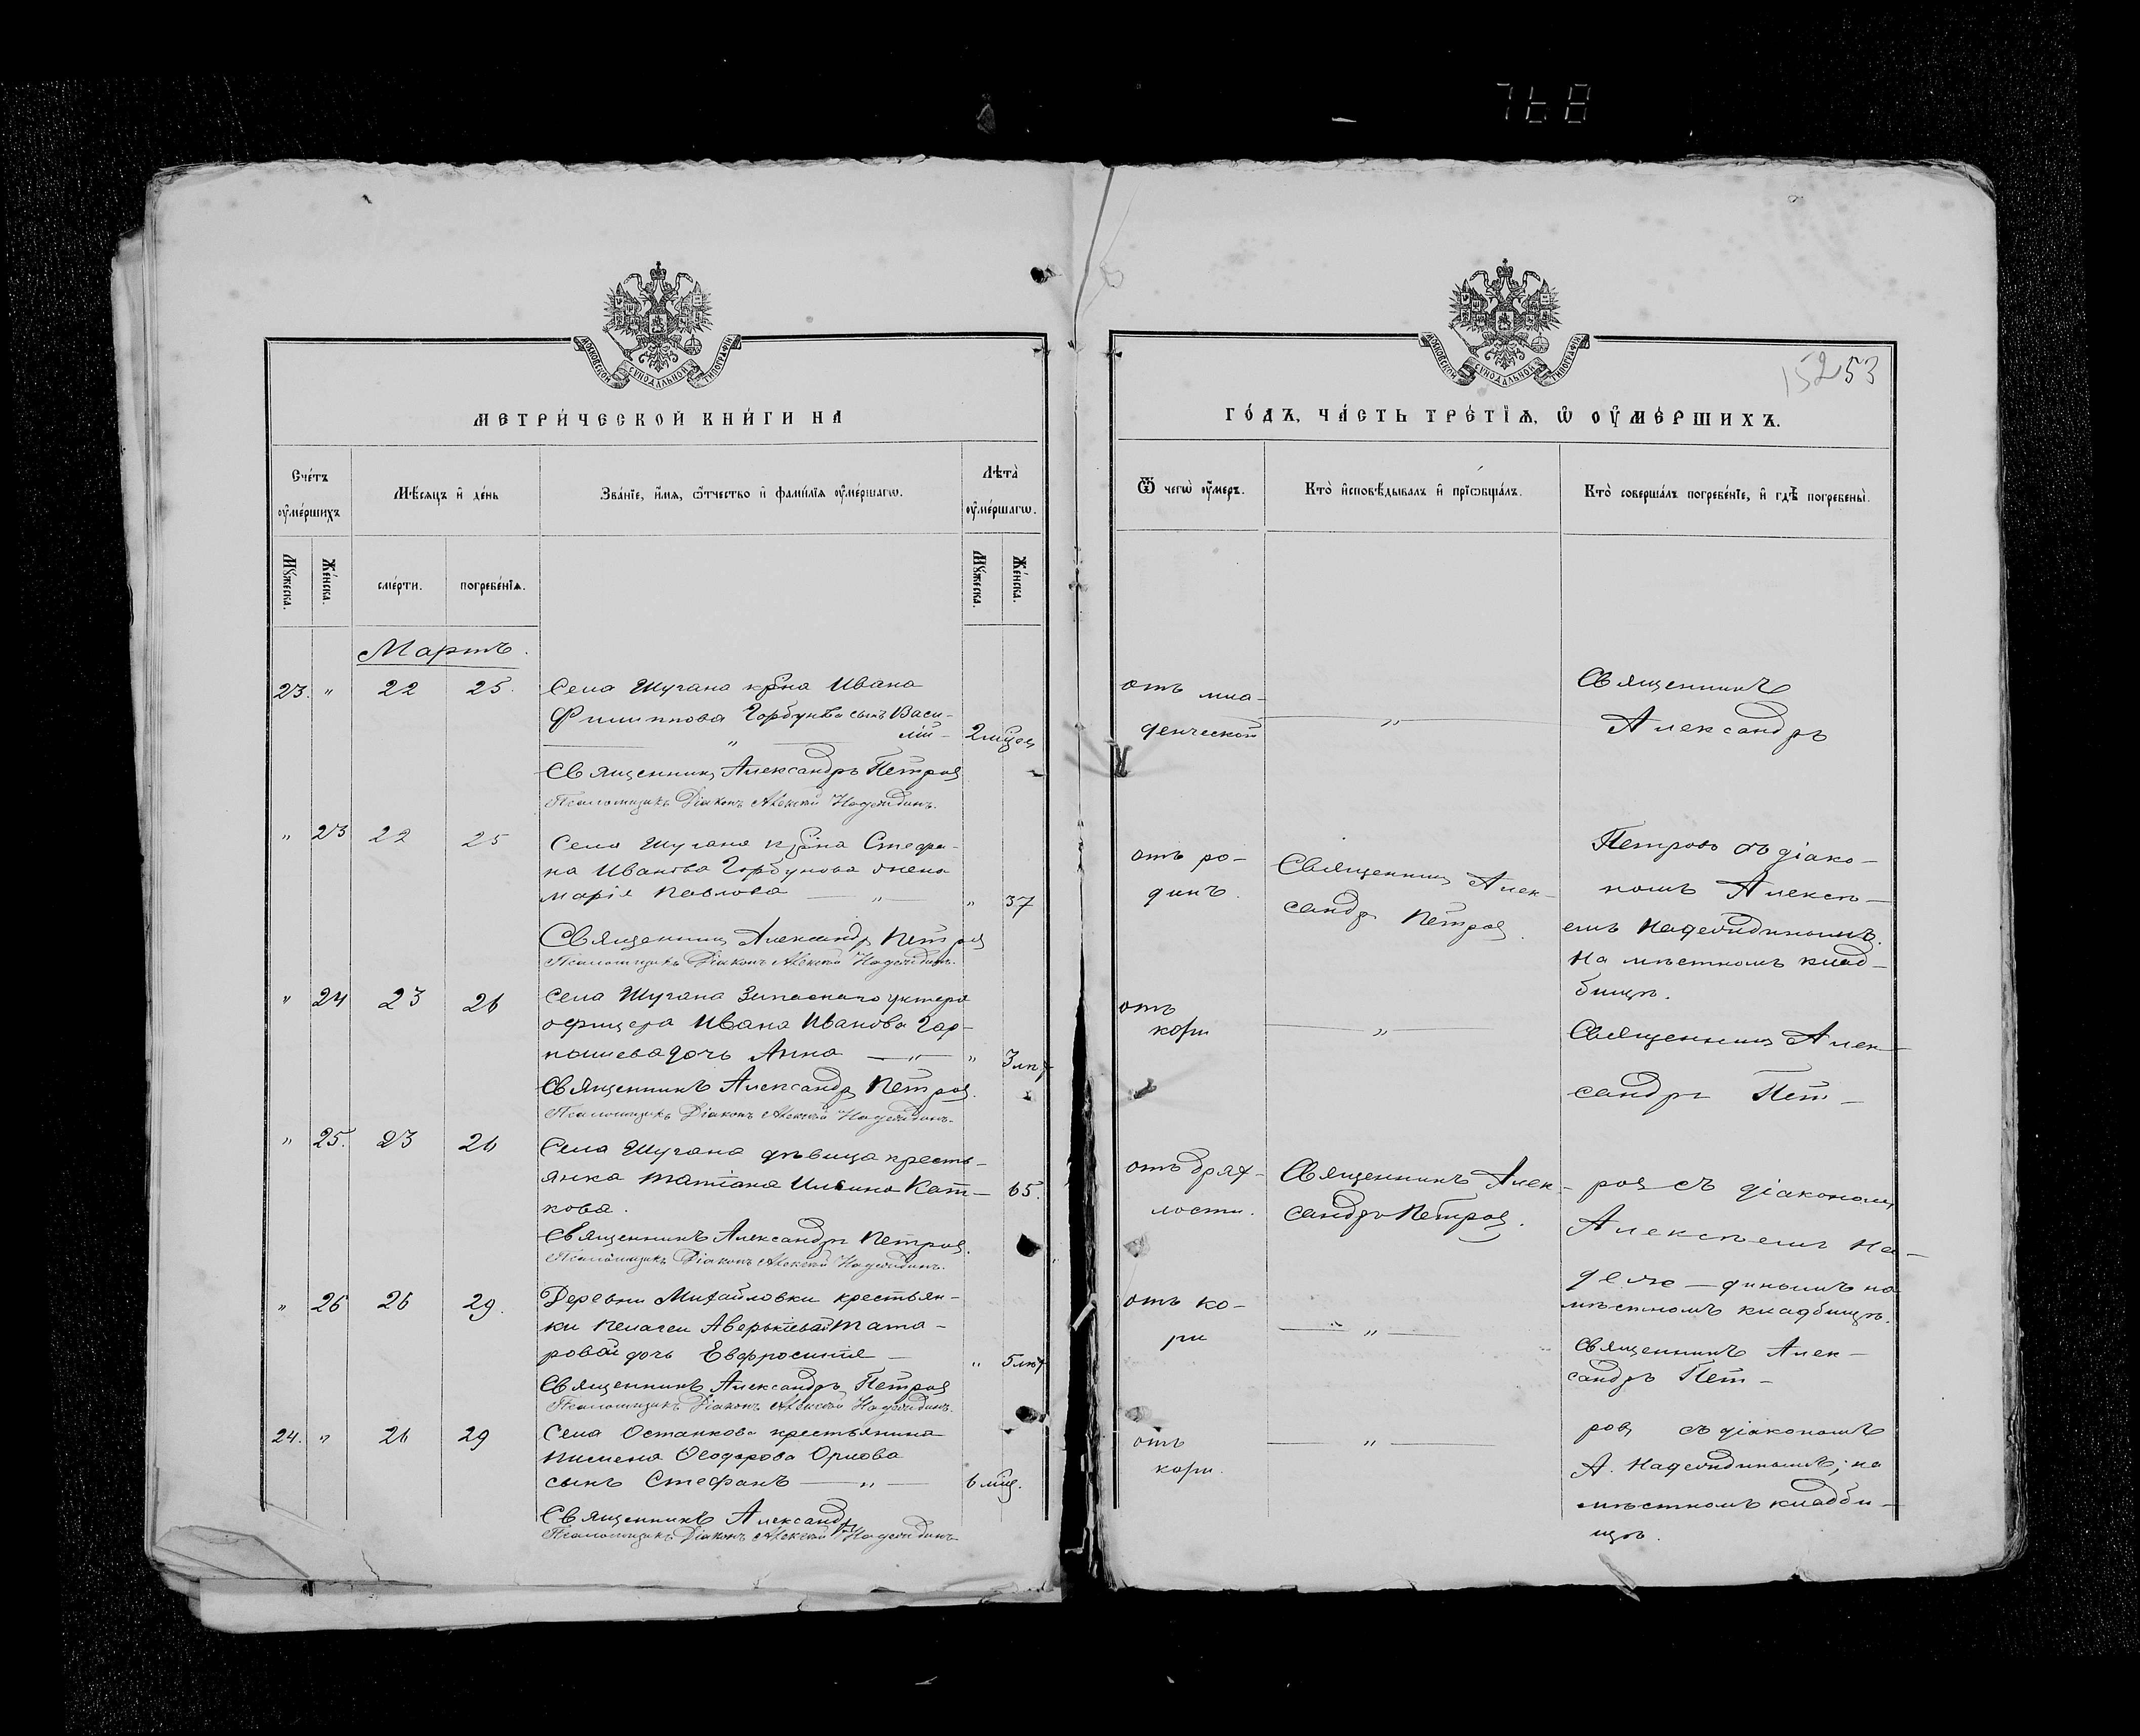 768
МОСКОВСКОЙ СУНОДАЛЬНОЙ ТИПОГРАФІИ
МЕТРИ́ЧЕСКОЙ КНИ́ГИ НА
Сче́тъ ᲂу҆ме́ршихъ
Мѣ́сяцъ и҆ де́нь
Зва́нїе, и҆́мя, ѻ҆́тчество и҆ фами́лїя ᲂу҆ме́ршагѡ.
Лѣ́та ᲂу҆ме́ршагѡ.
Мꙋ́жеска.
Же́нска.
сме́рти.
погребе́нїѧ.
Мꙋ́жеска.
Же́нска.
Мартъ.
23. " 22 25. Села Шугана крна Ивана
Филиппова Горбунова сынъ Васи-
лій — 2 мцеа
"
Священникъ Александръ Петровъ
Псаломщикъ Діаконъ Алексѣй Надеждинъ.
" 23 22 25 Села Шугана крна Стефа-
на Иванова Горбунова жена
Марія Павлова — " — " 37
Священникъ Александръ Петровъ
Псаломщикъ Діаконъ Алексѣй Надеждинъ.
" 24 23 26 Села Шугана Запаснаго унтеръ
офицера Ивана Иванова Гор-
дочь Анна — " — " 3 лѣт
Священникъ Александръ Петровъ.
Псаломщикъ Діаконъ Алексѣй Надеждинъ.
" 25. 23 26 Села Шугана дѣвица кресть-
янка Татіана Ильина Кат- 65.
кова.
Священникъ Александръ Петровъ.
Псаломщикъ Діаконъ Алексѣй Надеждинъ.
" 26 26 29. Деревни Михайловки крестьян-
ки Пелагеи Аверкіевой Тата-
ровой дочь Евфросинія — " 5 лѣт
Священникъ Александръ Петровъ
Псаломщикъ Діаконъ Алексѣй Надеждинъ.
24. " 26 29 Села Останкова крестьянина
Пимена Ѳеодорова Орлова
сынъ Стефанъ — " — 6 мцв.
Священникъ Александръ
Псаломщикъ Діаконъ Алексѣй Надеждинъ
МОСКОВСКОЙ СУНОДАЛЬНОЙ ТИПОГРАФІИ
15253
ГО́ДЪ, ЧА́СТЬ ТРЕ́ТЇѦ, Ѡ҆ ОУ҆МЕ́РШИХЪ.
Ѿ чегѡ̀ ᲂу҆́меръ.
Кто̀ и҆сповѣ́дывалъ и҆ прїѡбща́лъ.
Кто̀ соверша́лъ погребе́нїе, и҆ гдѣ̀ погребены̀.
отъ мла-
денческой
"
Священникъ
Александръ
отъ ро-
динъ.
Священникъ Алек-
сандръ Петровъ.
Петровъ съ діако-
номъ Алексѣ-
емъ Надеждинымъ.
На мѣстномъ клад-
бищѣ.
отъ
кори
"
Священникъ Алек-
сандръ Пет-
отъ дрях-
лости.
Священникъ Алек-
сандръ Петровъ.
ровъ съ діакономъ
Алексѣемъ На-
деж—динымъ на
мѣстномъ кладбищѣ.
отъ ко-
ри
"
Священникъ Алек-
сандръ Пет-
отъ
кори.
"
ровъ съ діакономъ
А. Надеждинымъ; на
мѣстномъ кладби-
щѣ.